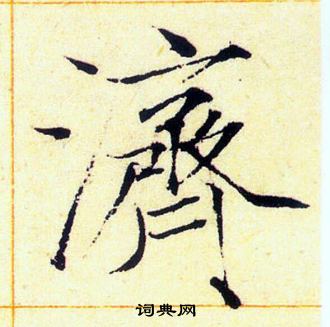 濟
词典网